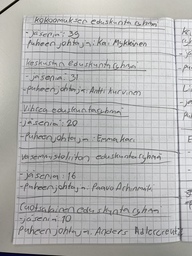 kokoomuksen eduskuntaryhmä
- jäseniä: 39
- puheenjohtaja: Kai Mykkänen
keskustan eduskuntaryhmä
- jäseniä: 31
- puheenjohtaja: Antti kurvinen
vihreä eduskuntaryhmä
- jäseniä: 20
- Puheenjohtaja: Emma kari
vasemmistoliiton eduskuntaryhmä
- jäseniä: 16
- Puheenjohtaja: Paavo Arhinmäki
Ruotsalainen eduskuntaryhmä
- jäseniä: 10
Puheenjohtaja: Anders Adlercreutz